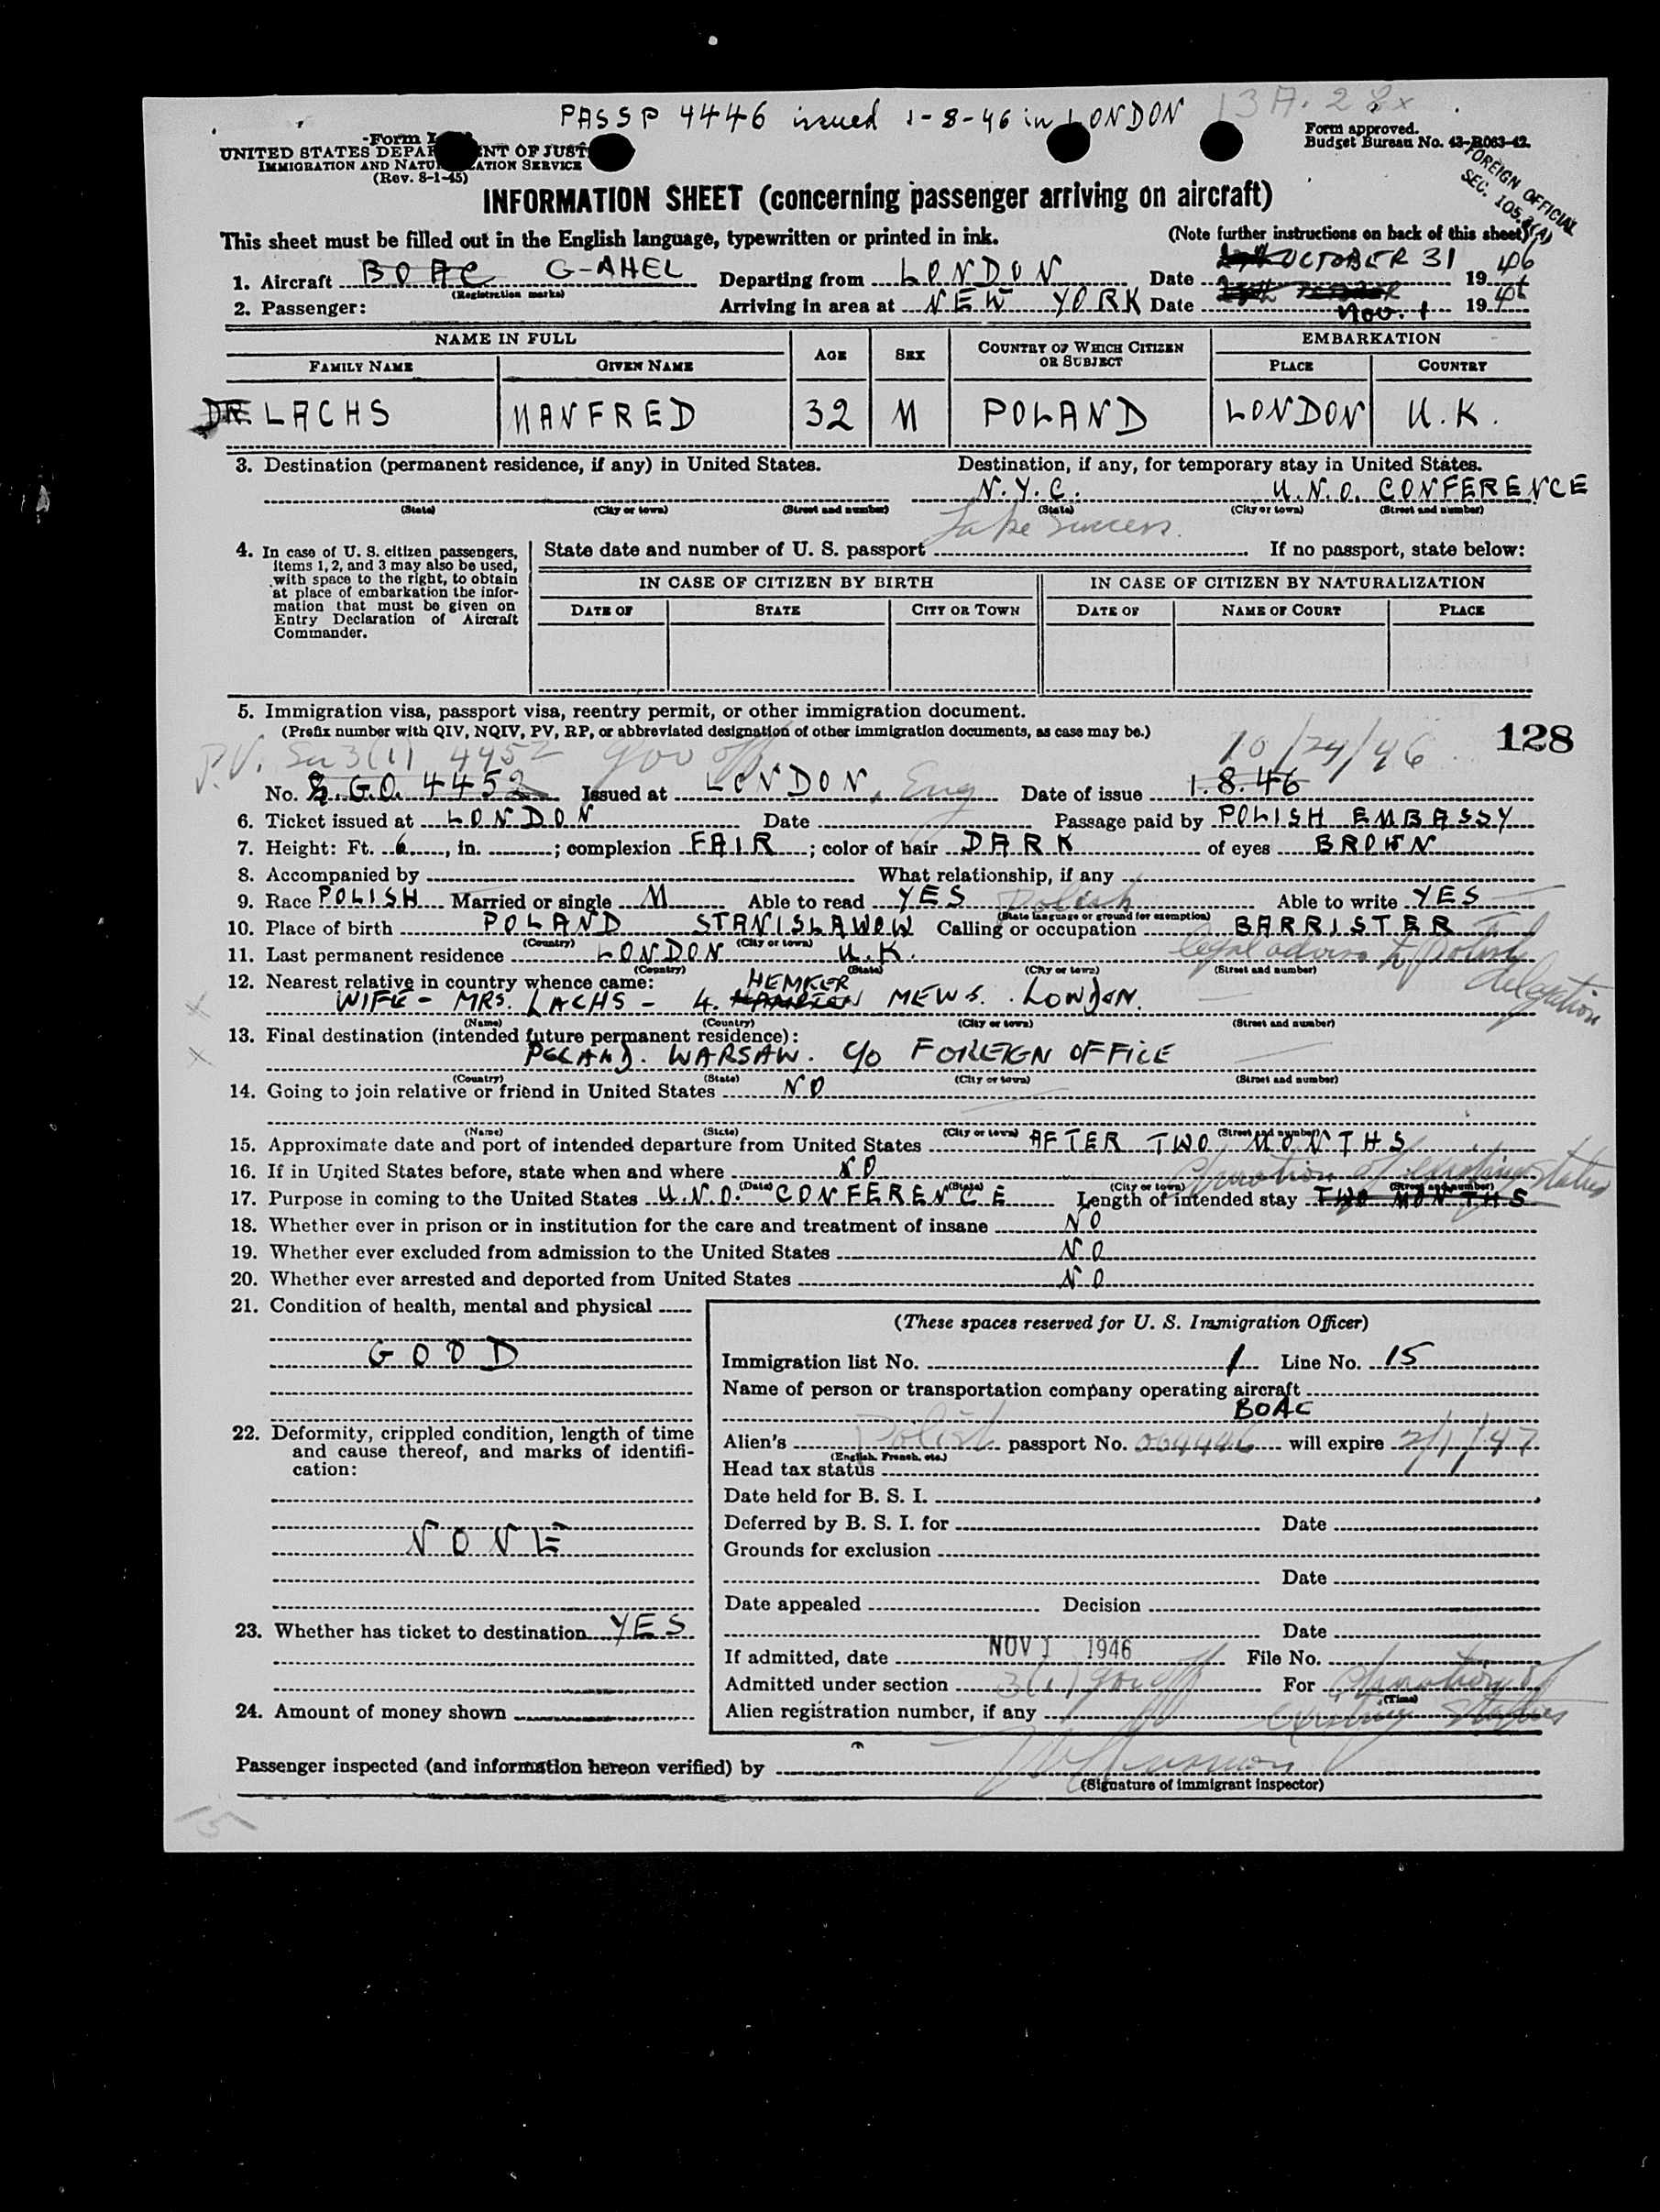 PASSP 4446 issued 1-8-46 in LONDON 13A.28x
Form approved.
Budget Bureau No. 43-R063-42.
Form
UNITED STATES DEPARTMENT OF JUSTICE
IMMIGRATION AND NATURALIZATION SERVICE
(Rev. 8-1-45)
FOREIGN OFFICIAL
SEC. 105.3(A)
INFORMATION SHEET (concerning passenger arriving on aircraft)
This sheet must be filled out in the English language, typewritten or printed in ink. (Note further instructions on back of this sheet)
1. Aircraft BOAC G-AHEL Departing from LONDON Date OCTOBER 31 1946
(Registration marks)
2. Passenger: Arriving in area at NEW YORK Date Nov. 1 1946
NAME IN FULL AGE SEX COUNTRY OF WHICH CITIZEN OR SUBJECT EMBARKATION
FAMILY NAME GIVEN NAME PLACE COUNTRY
DR LACHS MANFRED 32 M POLAND LONDON U.K.
3. Destination (permanent residence, if any) in United States. Destination, if any, for temporary stay in United States.
N.Y.C. U.N.O. CONFERENCE
(State) (City or town) (Street and number) (State) (City or town) (Street and number)
Lake Success.
4. In case of U. S. citizen passengers, items 1, 2, and 3 may also be used, with space to the right, to obtain at place of embarkation the information that must be given on Entry Declaration of Aircraft Commander.
State date and number of U. S. passport If no passport, state below:
IN CASE OF CITIZEN BY BIRTH IN CASE OF CITIZEN BY NATURALIZATION
DATE OF STATE CITY OR TOWN DATE OF NAME OF COURT PLACE
5. Immigration visa, passport visa, reentry permit, or other immigration document.
(Prefix number with QIV, NQIV, PV, RP, or abbreviated designation of other immigration documents, as case may be.) 128
P.V. Sec 3(1) 4452 gov off 10/24/46
No. S.G.O. 4452 Issued at LONDON, Eng Date of issue 1.8.46
6. Ticket issued at LONDON Date Passage paid by POLISH EMBASSY
7. Height: Ft. 6, in. ; complexion FAIR; color of hair DARK of eyes BROWN
8. Accompanied by What relationship, if any
9. Race POLISH Married or single M Able to read YES Polish Able to write YES
(State language or ground for exemption)
10. Place of birth POLAND STANISLAWOW Calling or occupation BARRISTER
(Country) (City or town)
legal advisor to Polish delegation
11. Last permanent residence LONDON U.K.
(Country) (State) (City or town) (Street and number)
12. Nearest relative in country whence came: HEMKER
WIFE - MRS. LACHS - 4. MEWS. LONDON.
(Name) (Country) (City or town) (Street and number)
13. Final destination (intended future permanent residence):
POLAND. WARSAW. c/o FOREIGN OFFICE
(Country) (State) (City or town) (Street and number)
14. Going to join relative or friend in United States NO
(Name) (State) (City or town) (Street and number)
15. Approximate date and port of intended departure from United States AFTER TWO MONTHS
16. If in United States before, state when and where NO
(Date) (State) (City or town) (Street and number)
duration of existing status
17. Purpose in coming to the United States U.N.O. CONFERENCE Length of intended stay TWO MONTHS
18. Whether ever in prison or in institution for the care and treatment of insane NO
19. Whether ever excluded from admission to the United States NO
20. Whether ever arrested and deported from United States NO
21. Condition of health, mental and physical
GOOD
22. Deformity, crippled condition, length of time and cause thereof, and marks of identification:
NONE
23. Whether has ticket to destination YES
24. Amount of money shown
(These spaces reserved for U. S. Immigration Officer)
Immigration list No. 1 Line No. 15
Name of person or transportation company operating aircraft
BOAC
Alien's Polish passport No. 064446 will expire 2/1/47
(English, French, etc.)
Head tax status
Date held for B. S. I.
Deferred by B. S. I. for Date
Grounds for exclusion
Date
Date appealed Decision
Date
If admitted, date NOV 1 1946 File No.
Admitted under section 3(1) gov off For duration of
(Time)
Alien registration number, if any existing status
Passenger inspected (and information hereon verified) by
(Signature of immigrant inspector)